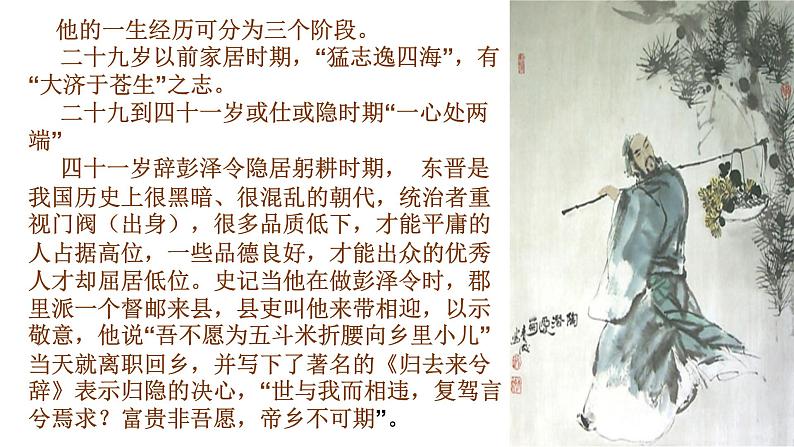 他的一生经历可分为三个阶段。
二十九岁以前家居时期，“猛志逸四海”，有
“大济于苍生”之志。
二十九到四十一岁或仕或隐时期“一心处两
端”
四十一岁辞彭泽令隐居躬耕时期， 东晋是
我国历史上很黑暗、很混乱的朝代，统治者重
视门阀（出身），很多品质低下，才能平庸的
人占据高位，一些品德良好，才能出众的优秀
人才却屈居低位。史记当他在做彭泽令时，郡
里派一个督邮来县，县吏叫他来带相迎，以示
敬意，他说“吾不愿为五斗米折腰向乡里小儿”
当天就离职回乡，并写下了著名的《归去来兮
辞》表示归隐的决心，“世与我而相违，复驾言
兮焉求？富贵非吾愿，帝乡不可期”。